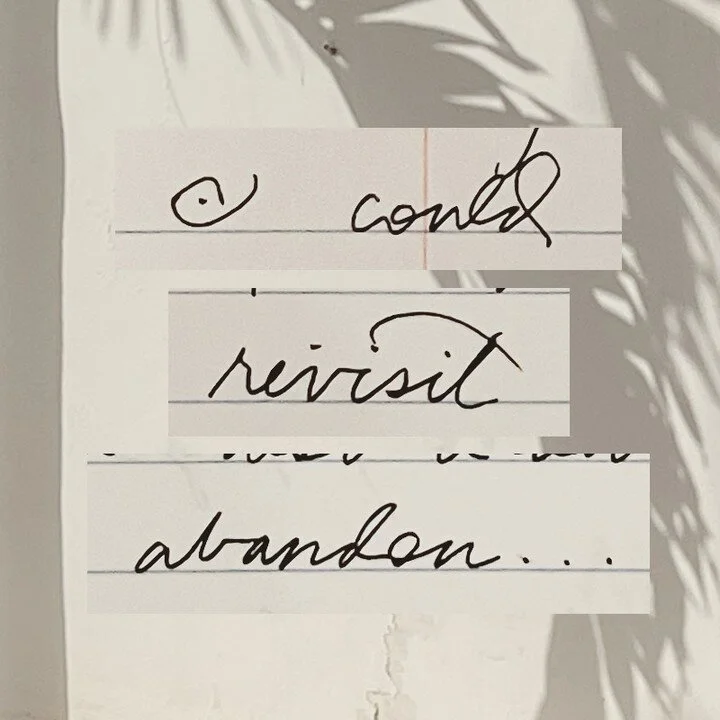 I could
revisit
abandon...